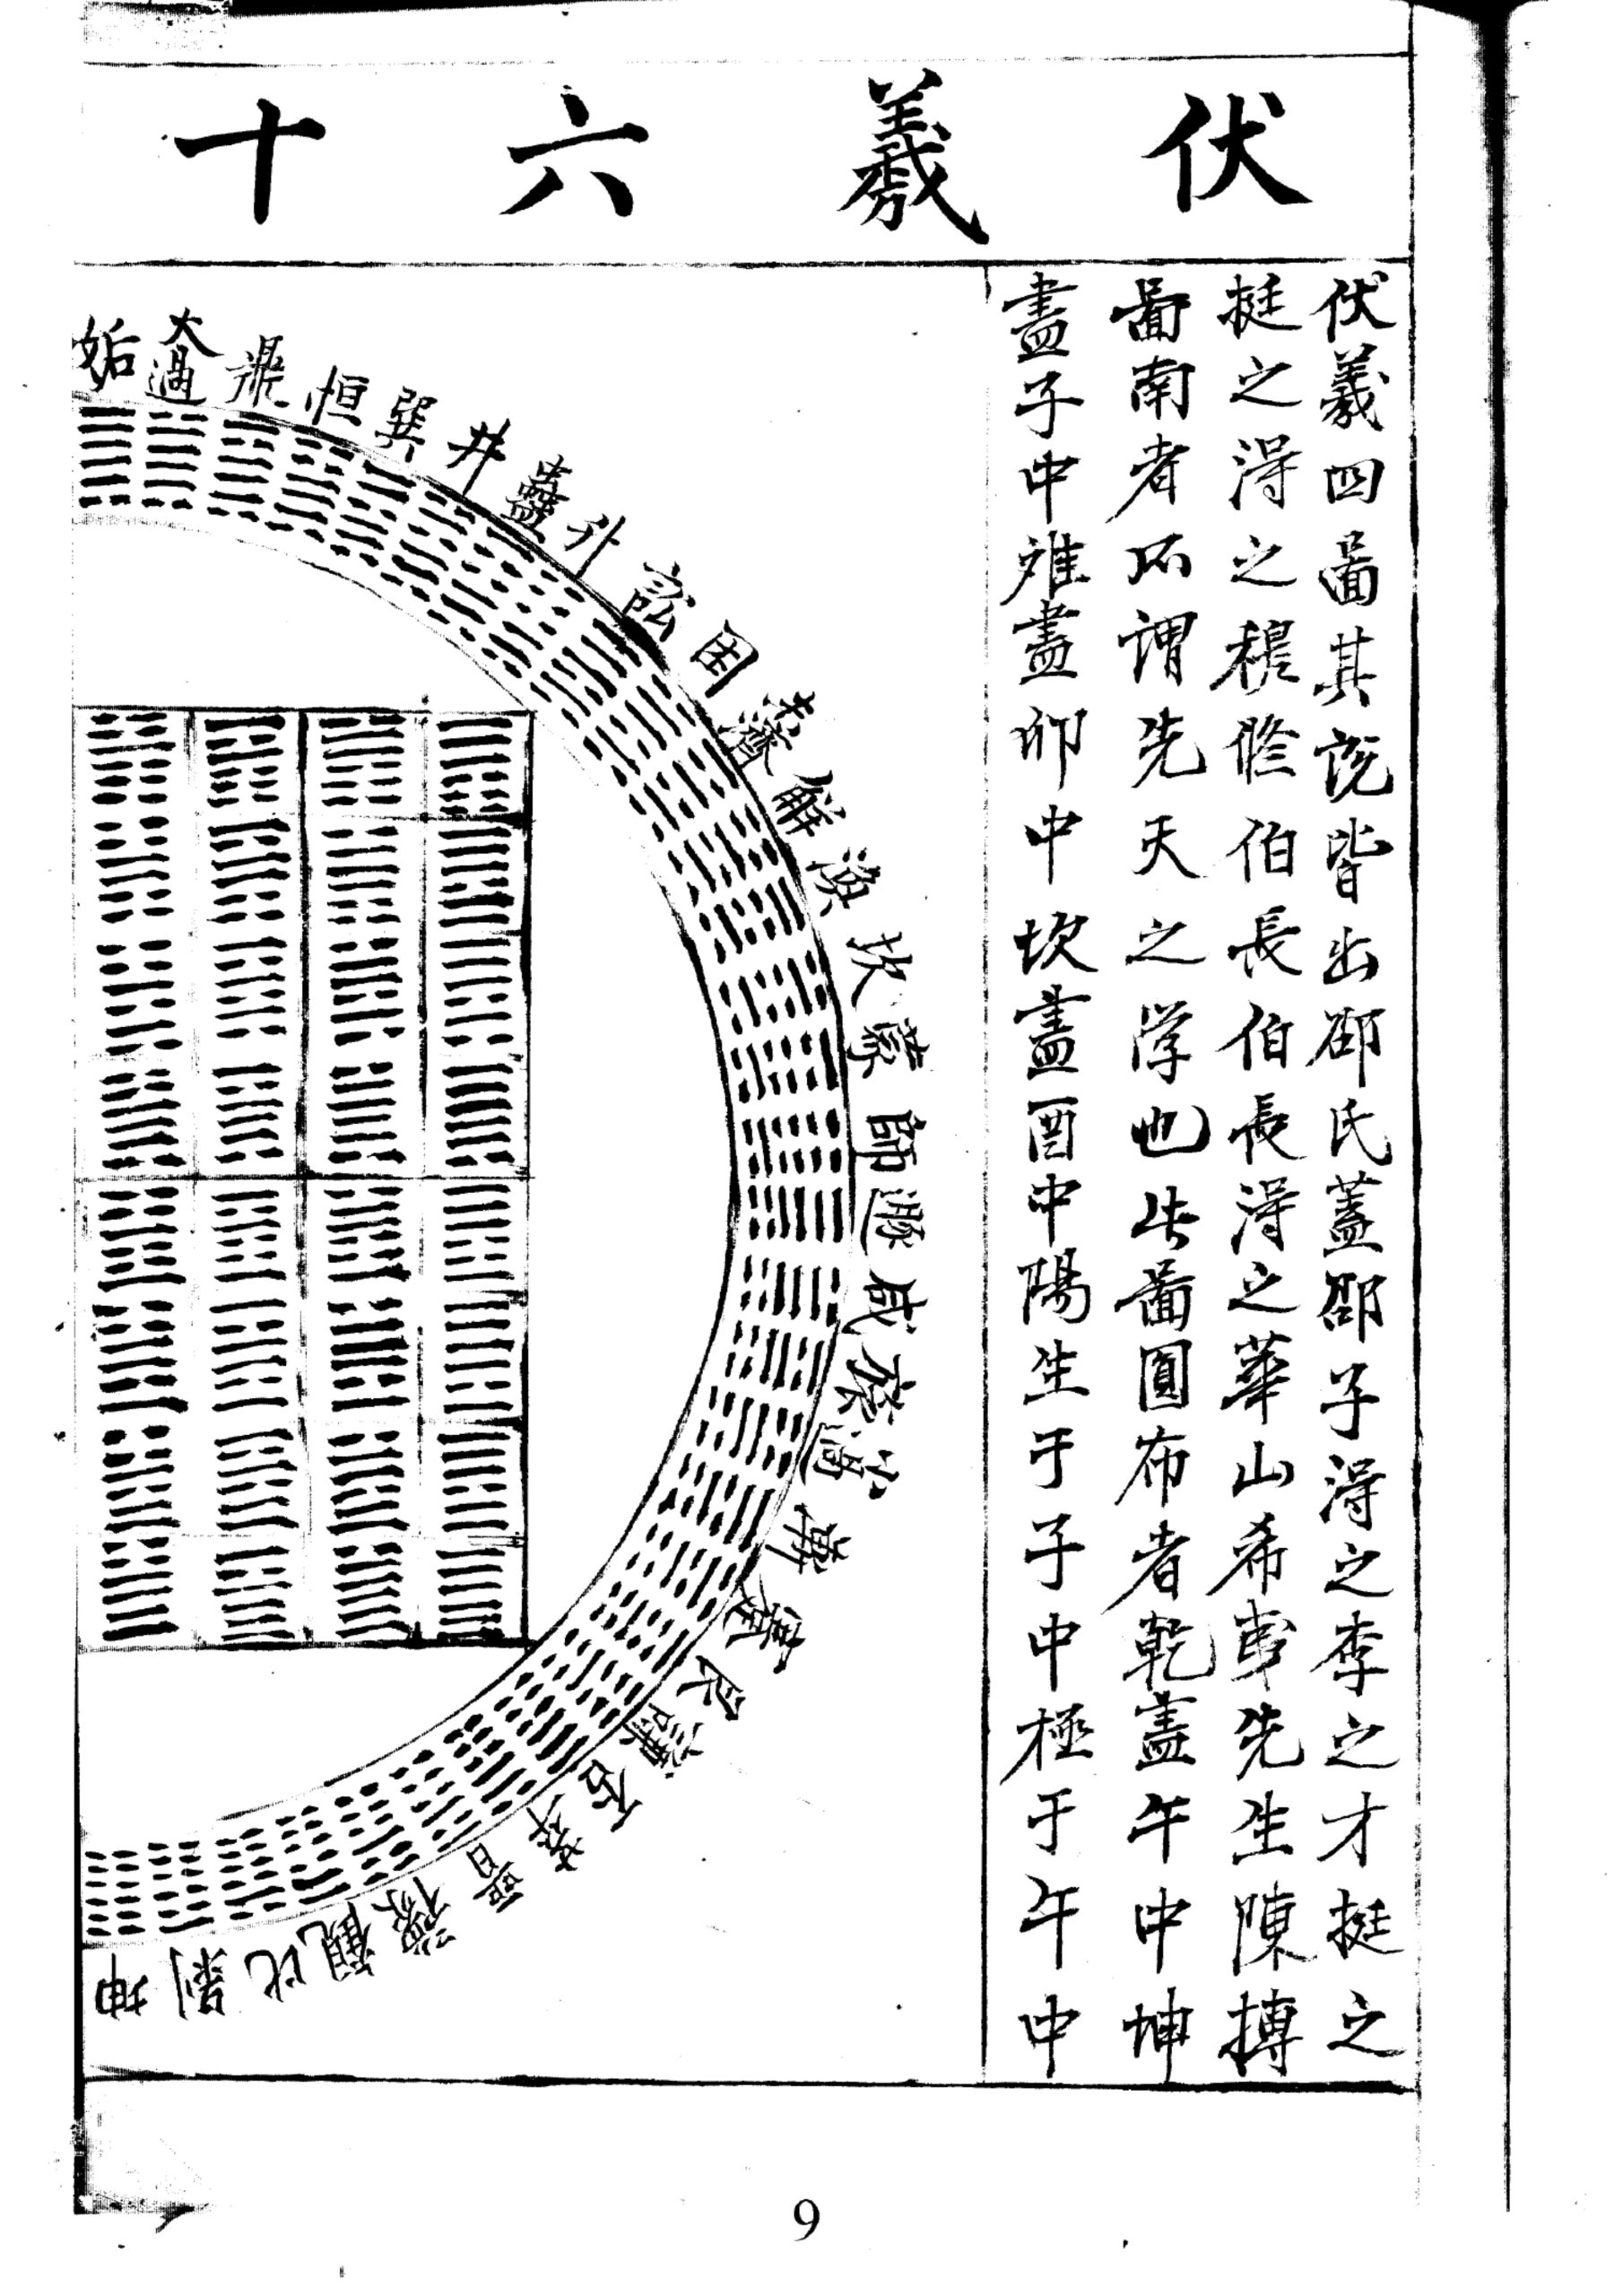 伏羲六十
伏羲四啚其說皆出邵氏蓋邵子得之李之才挺之
挺之得之穆脩伯長伯長得之華山希夷先生陳摶
啚南者所謂先天之学也此啚圓布者乾盡午中坤
盡子中离盡卯中坎盡酉中陽生于子中極于午中
姤
大過
鼎
恒
巽
井
蠱
升
訟
困
未濟
解
渙
坎
蒙
師
遯
咸
旅
小過
漸
蹇
艮
謙
否
萃
晋
豫
觀
比
剥
坤
9